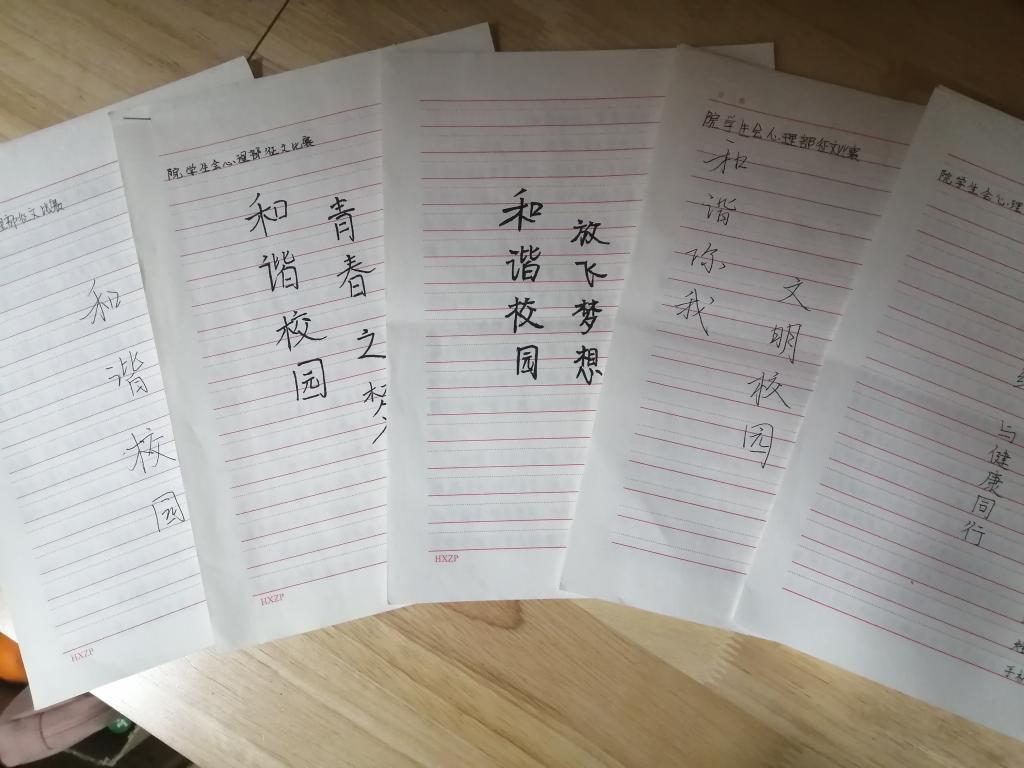 理部征文比赛
和谐校园
HXZP
院学生会心理部征文比赛
青春之梦
和谐校园
HXZP
放飞梦想
和谐校园
HXZP
院学生会心理部征文比赛
和谐你我
文明校园
院学生会心理
与健康同行